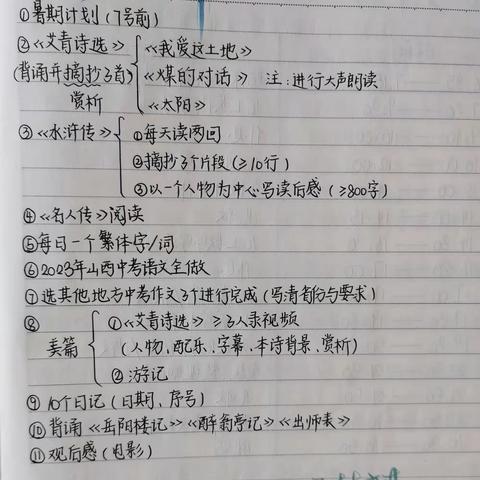 ①暑期计划(7号前)
②《艾青诗选》
(背诵并摘抄3首)
赏析
《我爱这土地》
《煤的对话》 注:进行大声朗读
《太阳》
③《水浒传》
①每天读两回
②摘抄3个片段(≥10行)
③以一个人物为中心写读后感(≥800字)
④《名人传》阅读
⑤每日一个繁体字/词
⑥2023年山西中考语文全做
⑦选其他地方中考作文3个进行完成(写清省份与要求)
⑧
美篇
①《艾青诗选》≥3人录视频
(人物、配乐、字幕、本诗背景、赏析)
②游记
⑨10个日记(日期、序号)
⑩背诵《岳阳楼记》《醉翁亭记》《出师表》
⑪观后感(电影)